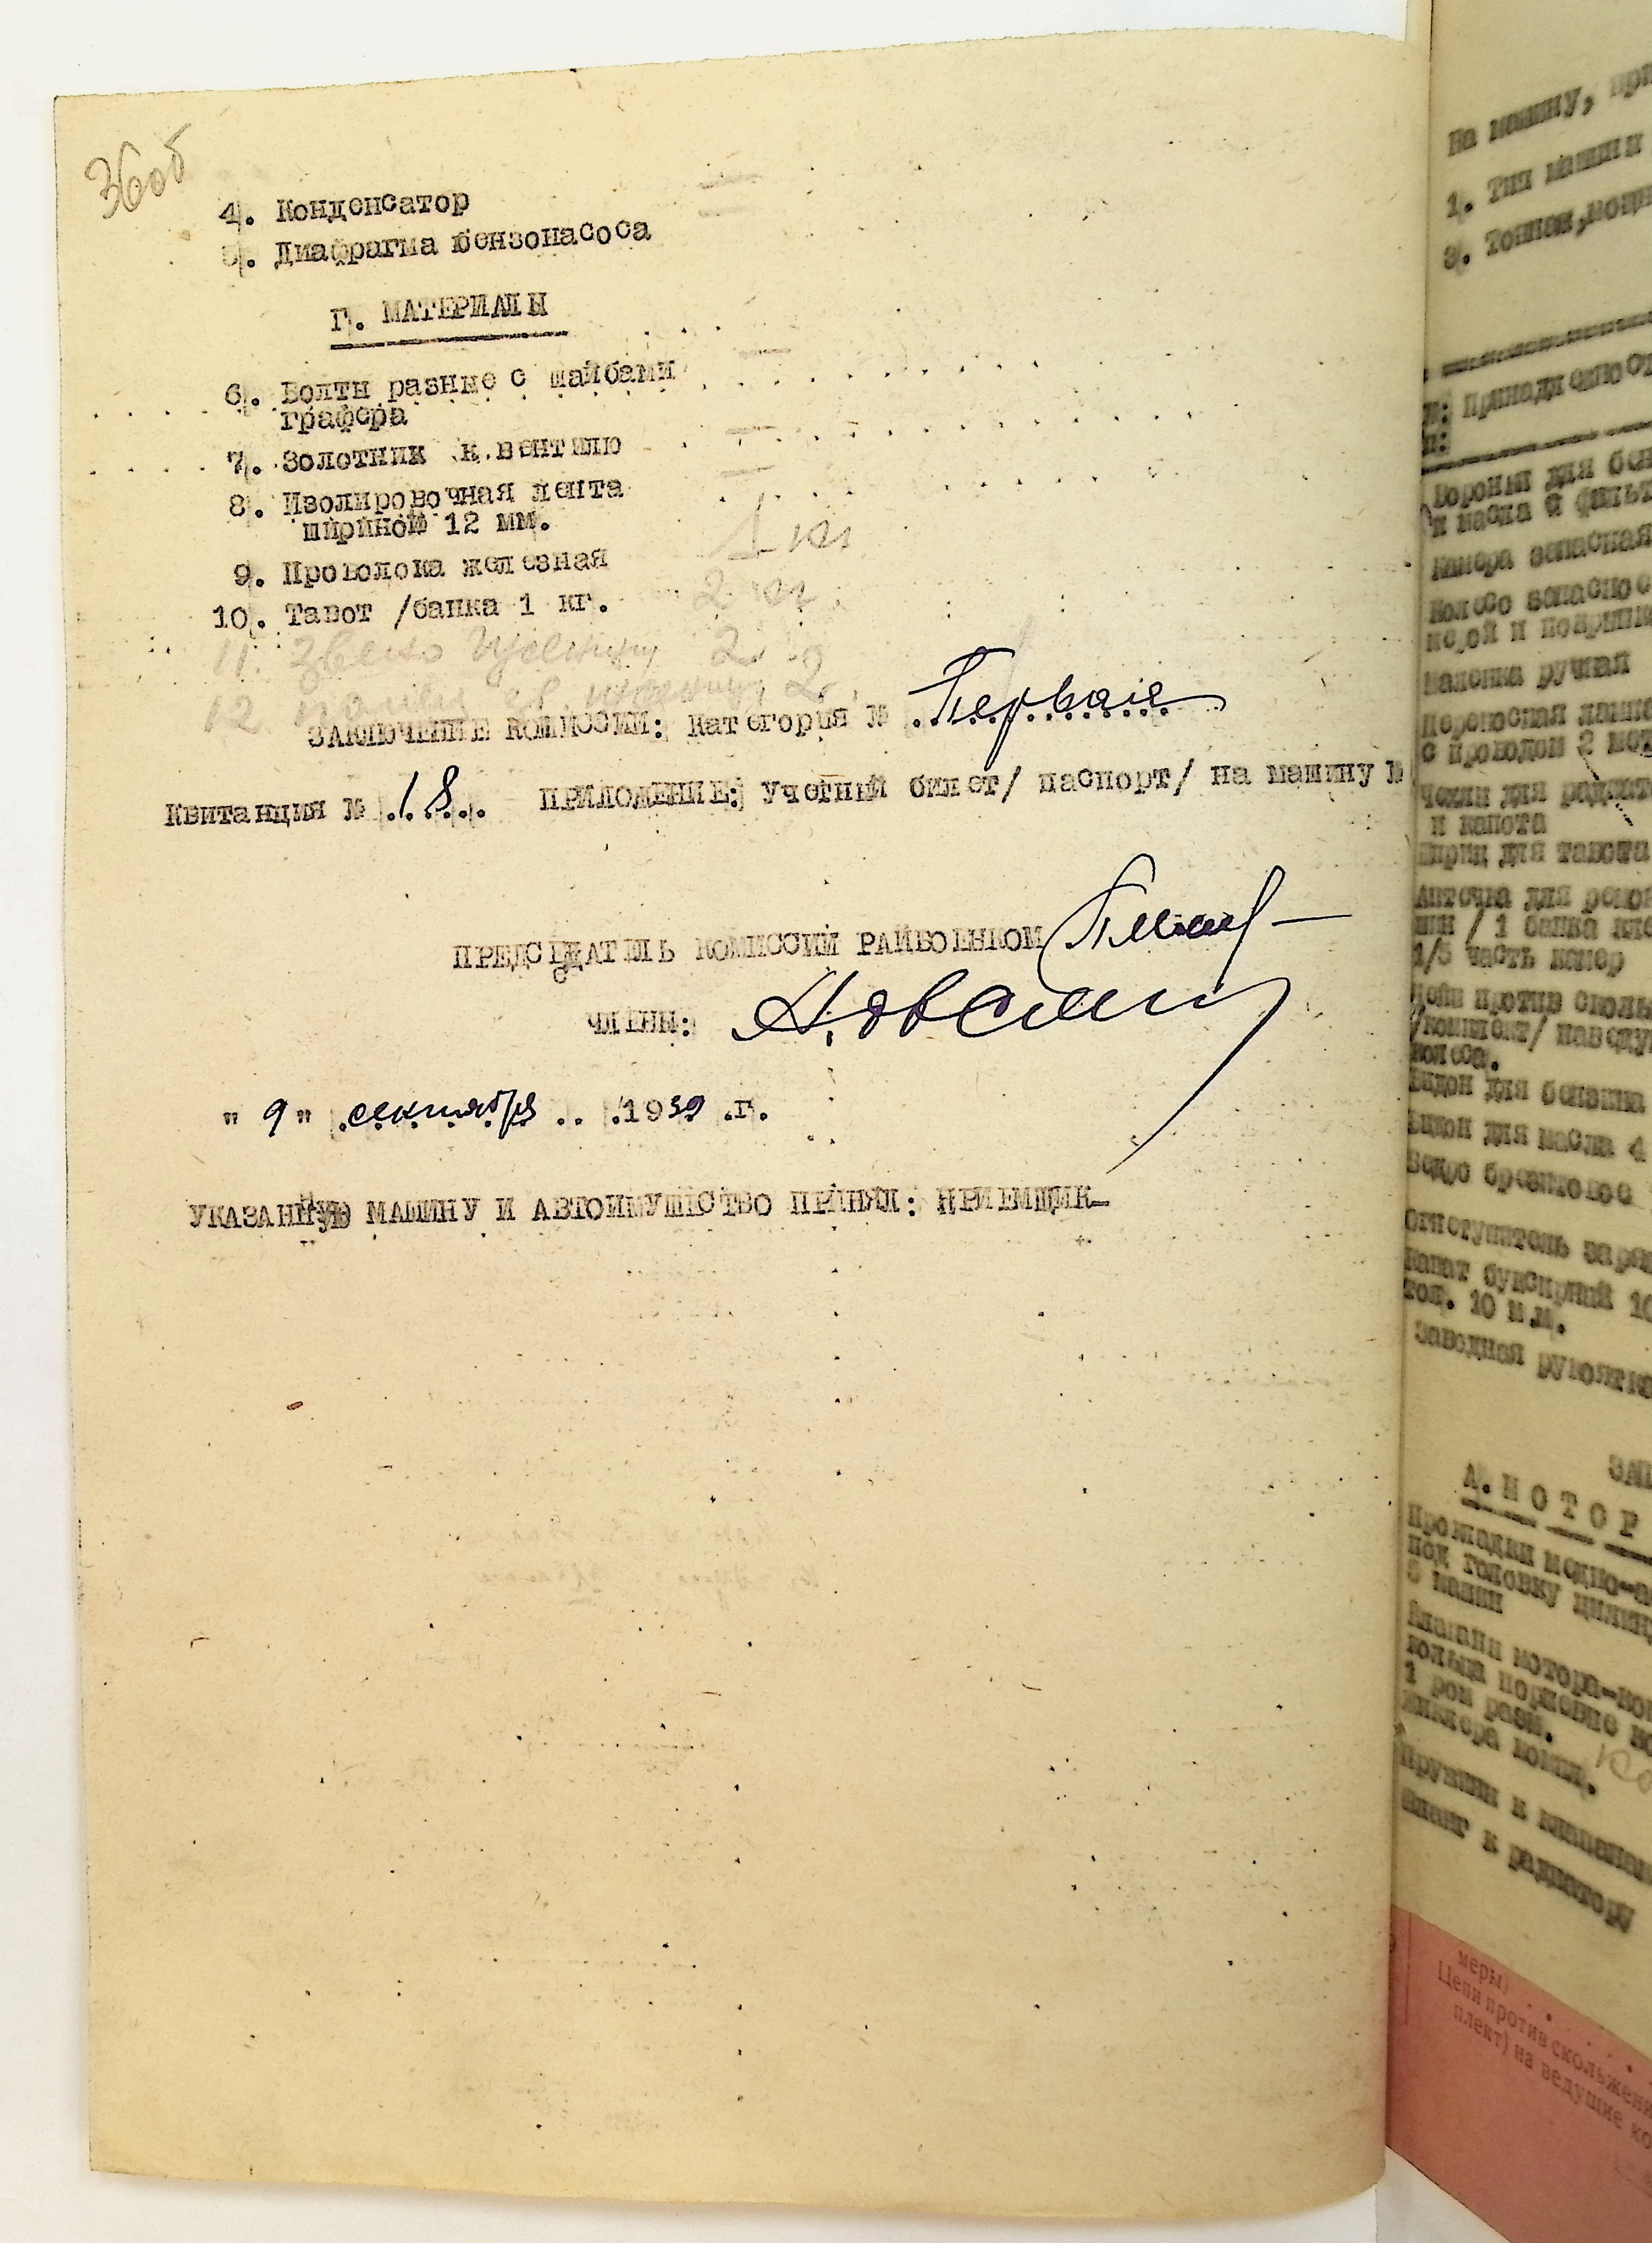 36об
4. Конденсатор
5. Диафрагма бензонасоса
Г. МАТЕРИАЛЫ
6. Болты разные с шайбами
графера
7. Золотник к вентилю
8. Изолировочная лента
шириной 12 мм.
9. Проволока железная 1 кг
10. Тавот /банка 1 кг. 2 кг
11. Звено 2
12 2
ЗАКЛЮЧЕНИЕ КОМИССИИ: категория № Первая
Квитанция № 18.. ПРИЛОЖЕНИЕ: Учетный билет/ паспорт/ на машину №
ПРЕДСЕДАТЕЛЬ КОМИССИИ РАЙВОЕНКОМ
ЧЛЕНЫ:
" 9 " сентября .. .1939 .г.
УКАЗАННУЮ МАШИНУ И АВТОИМУЩЕСТВО ПРИНЯЛ: ПРИЕМЩИК-
На машину,
1. Тип машины
3. Тоннаж,
Принадлежност
п:
Воронки для бен
и масла с филь
Камера запасная
Колесо запасное
мерой и покрышк
Масленка ручная
Переносная лампа
с проводом 2 мет
Чехлы для радиат
и капота
Шприц для тавота
Аптечка для ремон
шин / 1 банка кле
1/5 часть камер
Цепи против сколь
/комплект/ на веду
колеса.
Бидон для бензина
Бидон для масла 4
Ведро брезентовое
Огнетушитель заря
Канат буксирный 10
тол. 10 м.м.
Заводная рукоятка
ЗАП
А. МОТОР
Прокладки медно-а
под головку цилинд
Клапаны мотора-ком
кольца поршневые ко
1 рем разм.
жиклера компл.
Пружины к клапанам
Шланг к радиатору
меры)
Цепи против скольжени
плект) на ведущие ко